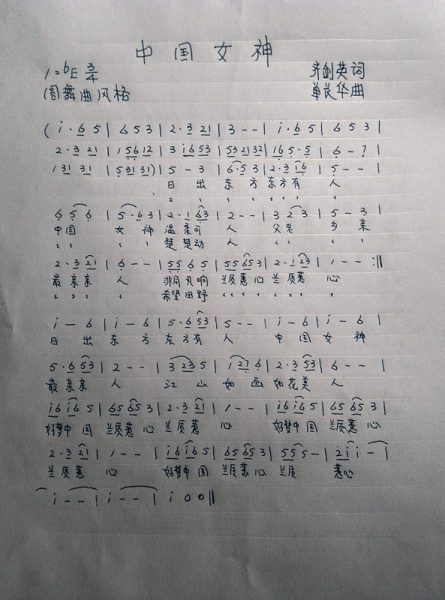 中国女神
1=bE 3/4 齐创英词
(圆舞曲风格 单长华曲
( i·65 | 653 | 2·321 | 3-- | i·65 | 653 |
2·321 | 15612 | 3i653 | 5321232 | 165·5· | 6-? |
131 31 | 53131) | 5-3 | 6·53 | 2·3i6 | 5-- |
日出东方东方有人
656 | 5·63 | 2·163 | 2-- | 323 | 5-3 |
中国女神温柔可人父老乡亲
楚楚动
2·321 | 6-- | 5565 | 55653 | 2·123 | 1-- :||
最亲亲人非同凡响兰质蕙心兰质蕙心
希望田野
i-6 | i-6 | 5·653 | 5-- | i-6 | i-6 |
日出东方东方有人中国女神
5·653 | 2-- | 3235 | 1216 | 2·353 | 6-- |
最亲亲人江山如画如花美人
i6i65 | 65653 | 2·321 | 1-- | i6i65 | 65653 |
好梦中国兰质蕙心兰质蕙心好梦中国兰质蕙心
2·321 | 1-- | i6i65 | 65653 | 555- | 2ii- |
兰质蕙心好梦中国兰质蕙心兰质蕙心
i-- | i-- | i00 ||